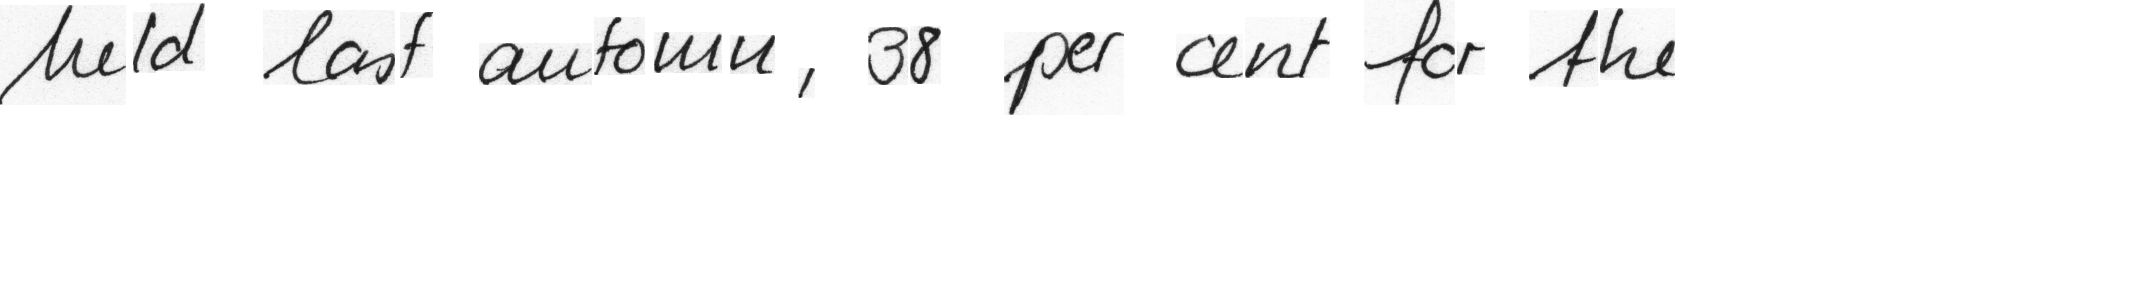 held last automn, 38 per cent for the